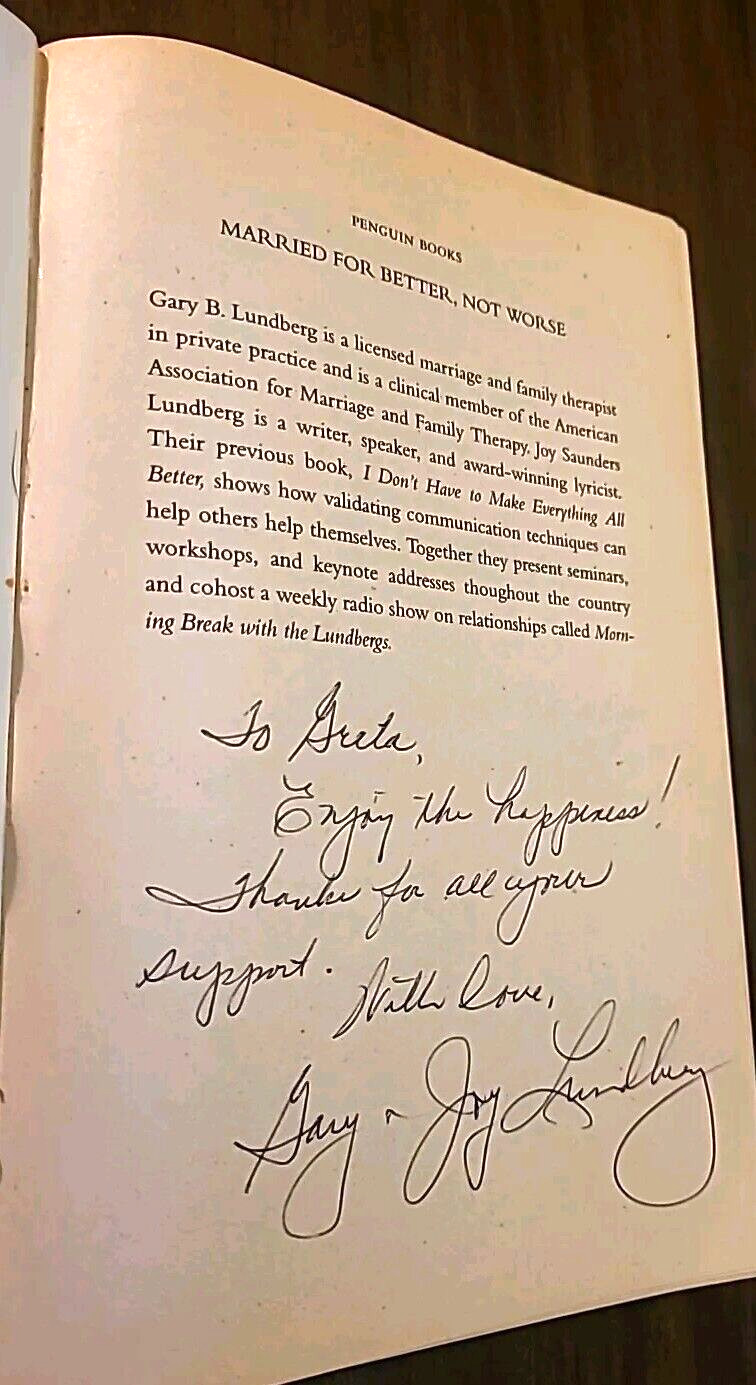 PENGUIN BOOKS
MARRIED FOR BETTER, NOT WORSE
Gary B. Lundberg is a licensed marriage and family therapist
in private practice and is a clinical member of the American
Association for Marriage and Family Therapy. Joy Saunders
Lundberg is a writer, speaker, and award-winning lyricist.
Their previous book, I Don't Have to Make Everything All
Better, shows how validating communication techniques can
help others help themselves. Together they present seminars,
workshops, and keynote addresses thoughout the country
and cohost a weekly radio show on relationships called Morn-
ing Break with the Lundbergs.
To Greta,
Enjoy the happiness!
Thanks for all your
support.
With love,
Gary & Joy Lundberg